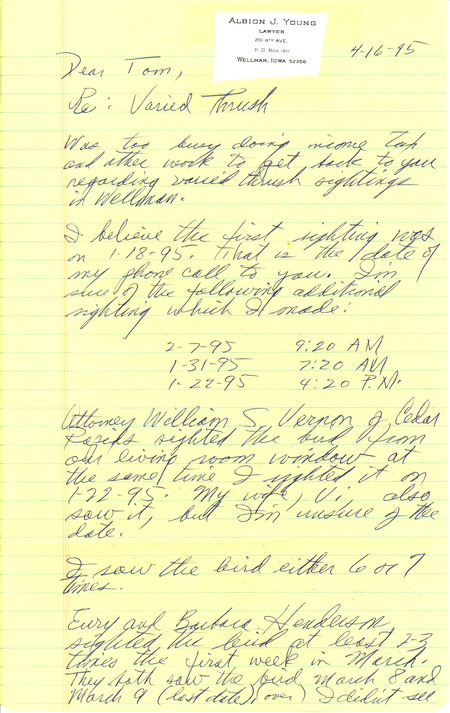 ALBION J. YOUNG
LAWYER
201 8TH AVE.
P. O. BOX 190
WELLMAN, IOWA 52356
4-16-95
Dear Tom,
Re: Varied Thrush
Was too busy doing income tax
and other work to get back to you
regarding varied thrush sightings
in Wellman.
I believe the first sighting was
on 1-18-95. That is the date of
my phone call to you. I'm
sure of the following additional
sighting which I made:
2-7-95 9:20 AM
1-31-95 7:20 AM
1-22-95 4:20 P.M.
Attorney William S. Vernon of Cedar
Rapids sighted the bird from
our living room window at
the same time I sighted it on
1-22-95. My wife, Vi, also
saw it, but I'm unsure of the
date.
I saw the bird either 6 or 7
times.
Eury and Barbara Henderson
sighted the bird at least 2-3
times the first week in March.
They both saw the bird March 8 and
March 9 (last date). (over) I didn't see